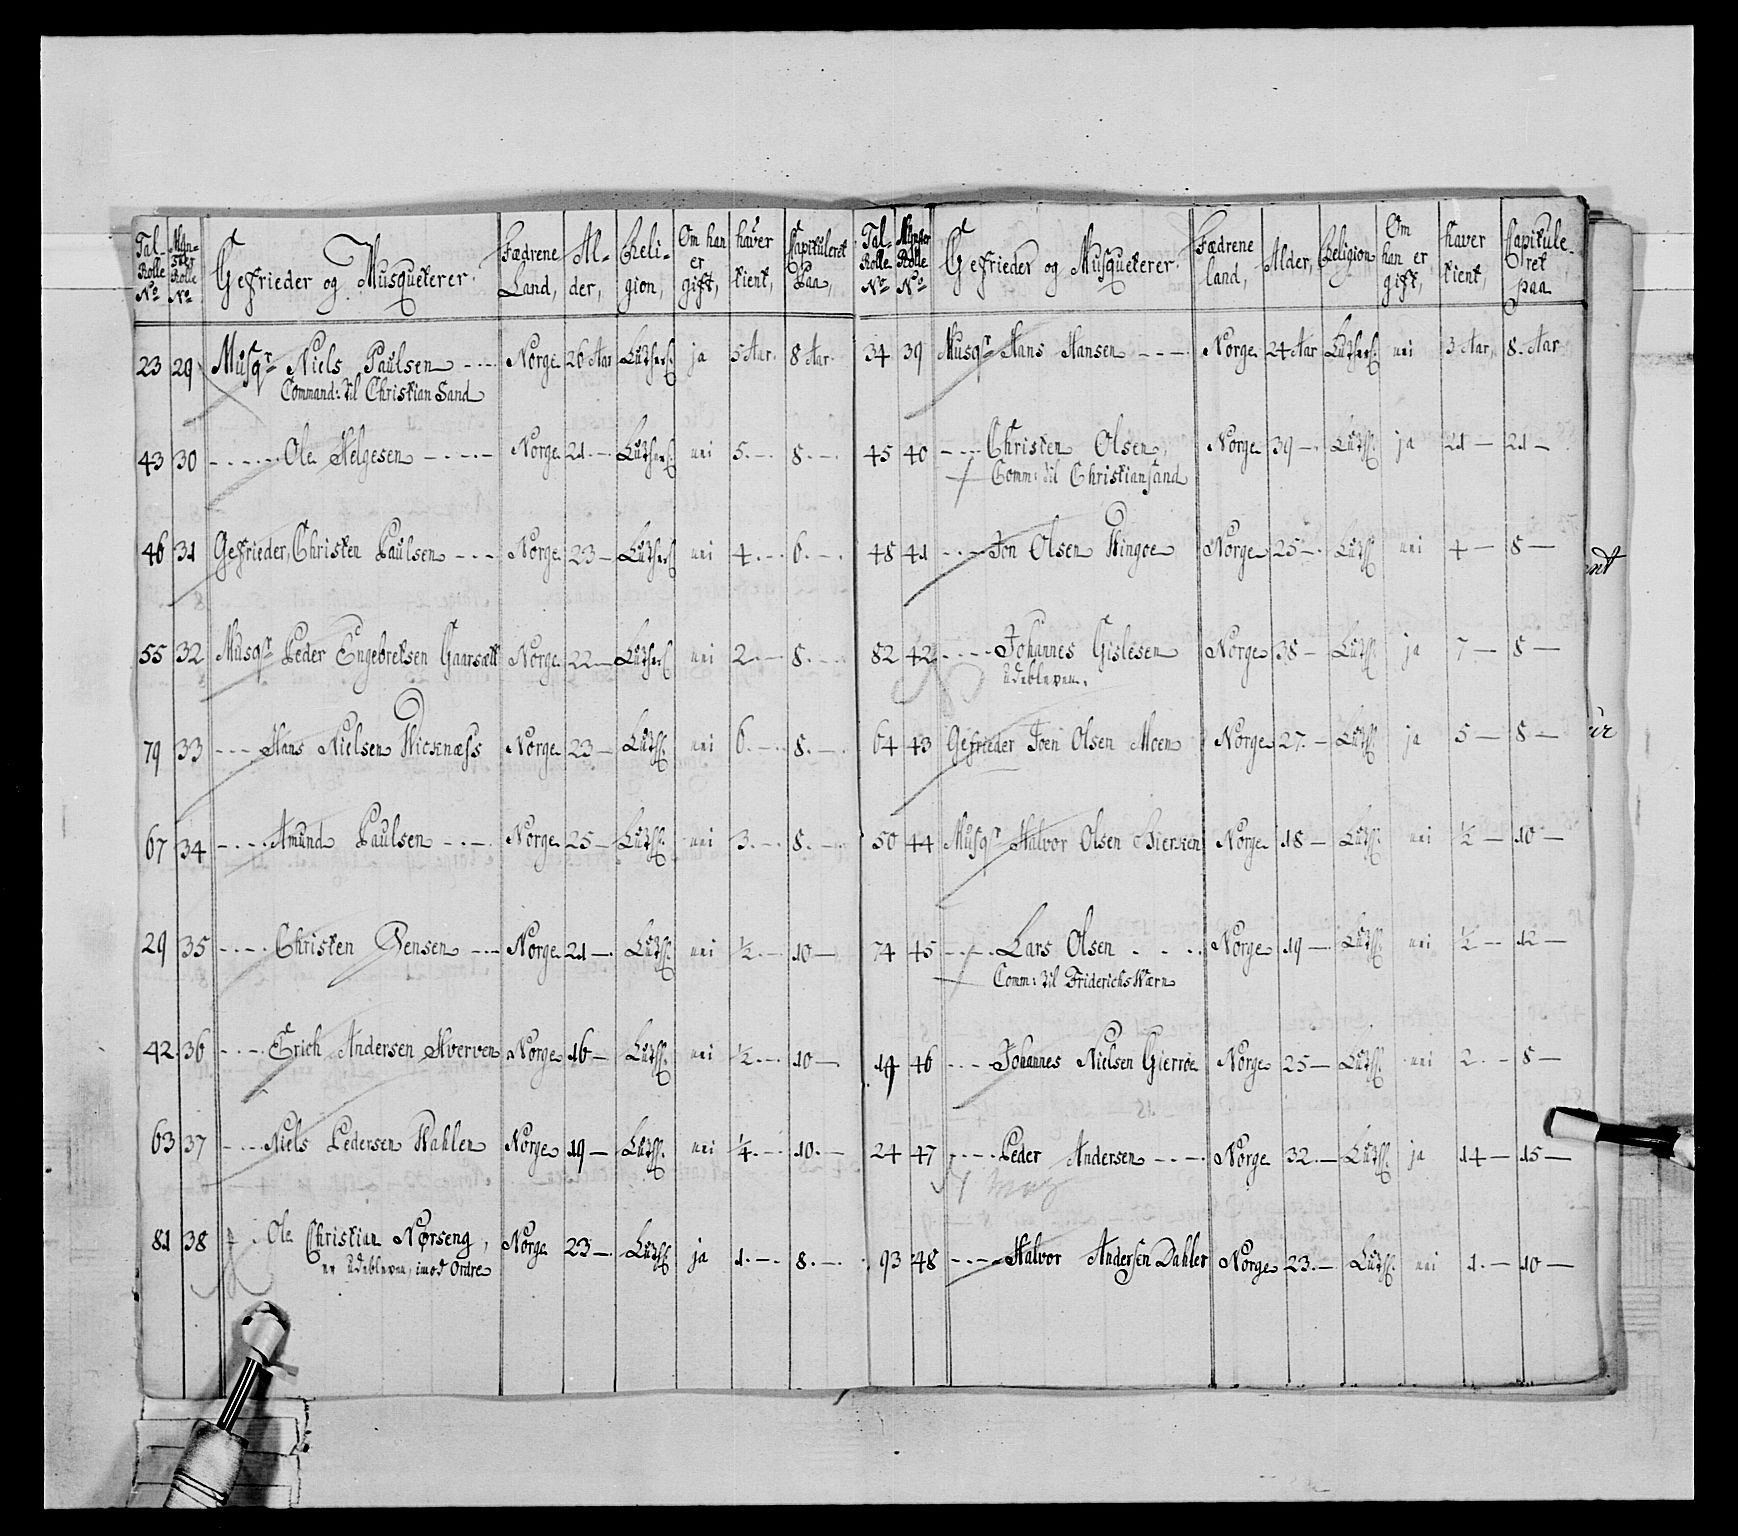 Tal- Rolle No | Mynster Rolle No | Gefrieder og Musqueterer. | Fædrene Land, | Al-der, | Reli-gion, | Om han er gift, | haver tient, | Capituleret Paa,
23 | 29 | Musqr Niels Paulsen | Norge | 26 Aar | Luthersk | ja | 5 Aar. | 8 Aar
Command: til Christian Sand
43 | 30 | Ole Helgesen | Norge | 21 | Luthersk | nei | 5 | 8
46 | 31 | Gefrieder, Christen Paulsen | Norge | 23 | Luthersk | nei | 4 | 6
55 | 32 | Musqr Peder Engebretsen Gaarsætt | Norge | 22 | Luthersk | nei | 2 | 8
79 | 33 | Hans Nielsen | Norge | 23 | Luth. | nei | 6 | 8
67 | 34 | Amund Paulsen | Norge | 25 | Luth. | nei | 3 | 8
29 | 35 | Christen Jensen | Norge | 21 | Luth. | nei | ½ | 10
42 | 36 | Erich Andersen Hverven | Norge | 16 | Luth. | nei | ½ | 10
63 | 37 | Niels Pedersen Wahlen | Norge | 19 | Luth. | nei | ¼ | 10
81 | 38 | Ole Christian Nørseng, | Norge | 23 | Luth. | ja | 1 | 8
er udebleven, imod Ordre
Tal- Rolle No | Mynster Rolle No | Gefrieder og Musqueterer. | Fædrene land, | Alder, | Religion | Om han er gift, | haver tient, | Capitule-ret paa
34 | 39 | Musqr Hans Hansen | Norge | 24 Aar | Luthersk | nei | 3 Aar, | 8. Aar
45 | 40 | Christen Olsen, | Norge | 39 | Luth. | ja | 21 | 21
Comm: til Christiansand
48 | 41 | Jon Olsen Wingoe | Norge | 25 | Luth. | nei | 4 | 8
82 | 42 | Johannes Gislesen | Norge | 38 | Luth. | ja | 7 | 8
udebleven.
64 | 43 | Gefrieder Joen Olsen Moen | Norge | 27 | Luth. | ja | 5 | 8
50 | 44 | Musqr Halvor Olsen | Norge | 18 | Luth. | nei | ½ | 10
74 | 45 | Lars Olsen | Norge | 19 | Luth. | nei | ½ | 12
Comm: til Friderichs Wærn
14 | 46 | Johannes Nielsen Gierroe | Norge | 25 | Luth. | nei | 2 | 8
24 | 47 | Peder Andersen | Norge | 32 | Luth. | ja | 14 | 15
93 | 48 | Halvor Andersen Dahler | Norge | 23 | Luth. | nei | 1 | 10